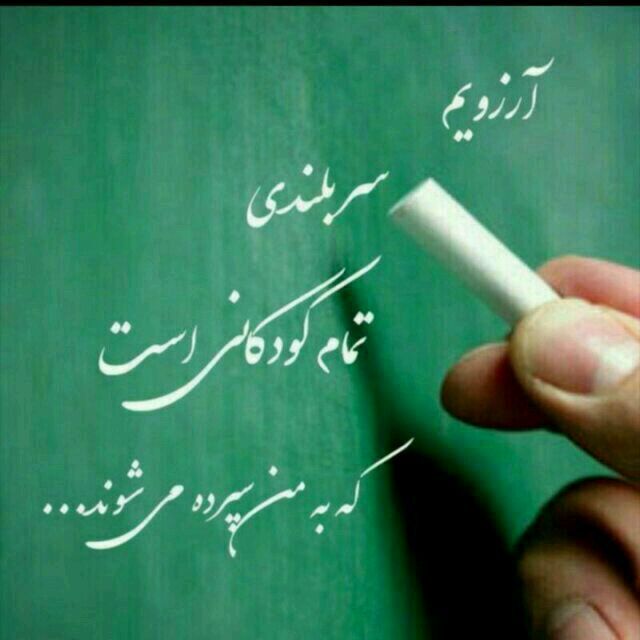 آرزویم
سربلندی
تمام کودکانی است
که به من سپرده می شوند...